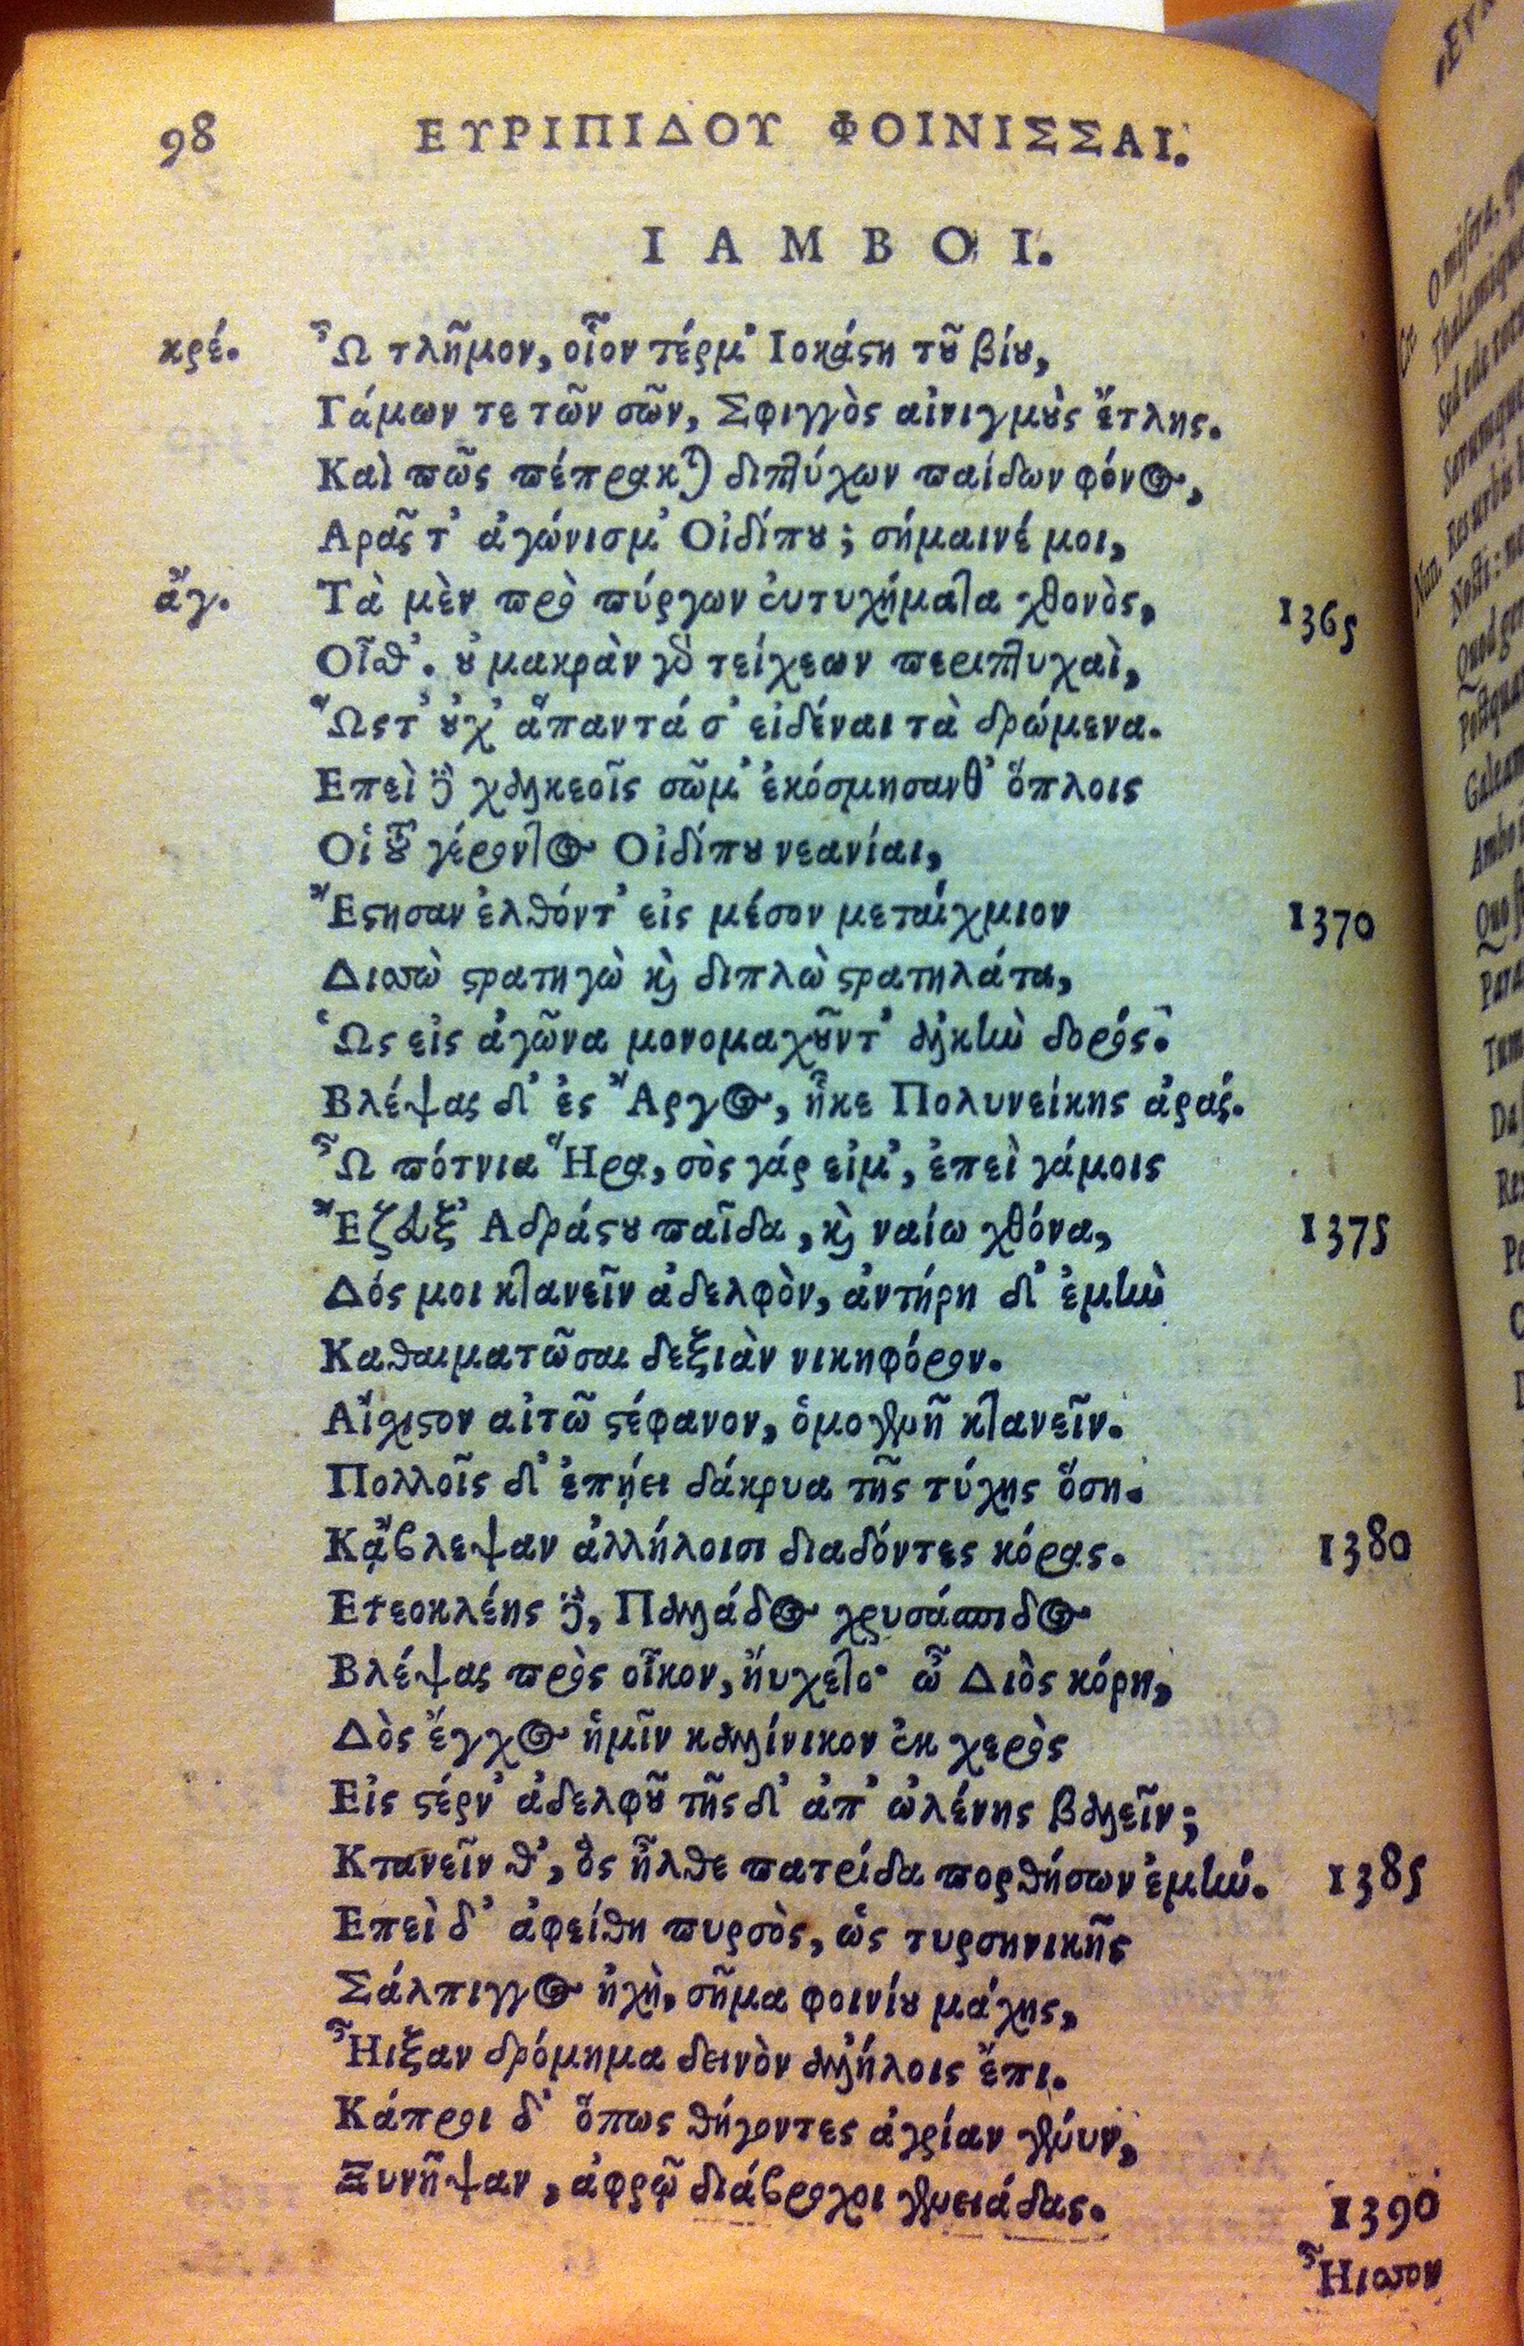 98 ΕΥΡΙΠΙΔΟΥ ΦΟΙΝΙΣΣΑΙ.
ΙΑΜΒΟΙ.
κρέ. Ὦ τλῆμον, οἷον τέρμ' Ιοκάϛη τȣ͂ βίȣ,
Γάμων τε τῶν σῶν, Σφιγγὸς αἰνιγμȣ̀ς ἔτλης.
Καὶ πῶς πέπρακται διπτύχων παίδων φόνος,
Αρᾶς τ' ἀγώνισμ' Οἰδίπȣ; σήμαινέ μοι,
ἄγ. Τὰ μὲν πρὸ πύργων εὐτυχήματα χθονὸς, 1365
Οἶσθ'. ȣ̓ μακρὰν γὰρ τείχεων περιπτυχαὶ,
Ὥςτ' ȣ̓χ' ἅπαντά σ' εἰδέναι τὰ δρώμενα.
Επεὶ δὲ χαλκεοῖς σῶμ' ἐκόσμησανθ' ὅπλοις
Οἱ τȣ͂ γέροντος Οἰδίπȣ νεανίαι,
Ἔϛησαν ἐλθόντ' εἰς μέσον μεταίχμιον 1370
Διοσὼ ϛρατηγὼ καὶ διπλὼ ϛρατηλάτα,
Ὡς εἰς ἀγῶνα μονομαχȣ͂ντ' ἀλκὴν δορός.
Βλέψας δ' ἐς Ἄργος, ἧκε Πολυνείκης ἀράς.
Ὦ πότνια Ἥρα, σὸς γάρ εἰμ', ἐπεὶ γάμοις
Ἔζευξ' Αδράϛȣ παῖδα, καὶ ναίω χθόνα, 1375
Δός μοι κτανεῖν ἀδελφὸν, ἀντήρη δ' ἐμὴν
Καθαιματῶσαι δεξιὰν νικηφόρον.
Αἴχιϛον αἰτῶ ϛέφανον, ὁμογενῆ κτανεῖν.
Πολλοῖς δ' ἐπῄει δάκρυα τῆς τύχης ὅση.
Κᾄβλεψαν ἀλλήλοισι διαδόντες κόρας. 1380
Ετεοκλέης δὲ, Παλλάδος χρυσάσπιδος
Βλέψας πρὸς οἶκον, ηὔχετο· ὦ Διὸς κόρη,
Δὸς ἔγχος ἡμῖν καλλίνικον ἐκ χερὸς
Εἰς ϛέρν' ἀδελφȣ͂ τῆς δ' ἀπ' ὠλένης βαλεῖν;
Κτανεῖν θ', ὃς ἦλθε πατρίδα πορθήσων ἐμήν. 1385
Επεὶ δ' ἀφείθη πυρσὸς, ὡς τυρσηνικῆς
Σάλπιγγος ἠχὴ, σῆμα φοινίȣ μάχης,
Ἦιξαν δρόμημα δεινὸν ἀλλήλοις ἔπι.
Κάπροι δ' ὅπως θήγοντες ἀγρίαν γένυν,
Ξυνῆψαν, ἀφρῷ διάβροχοι γενειάδας. 1390
Ἦισσον